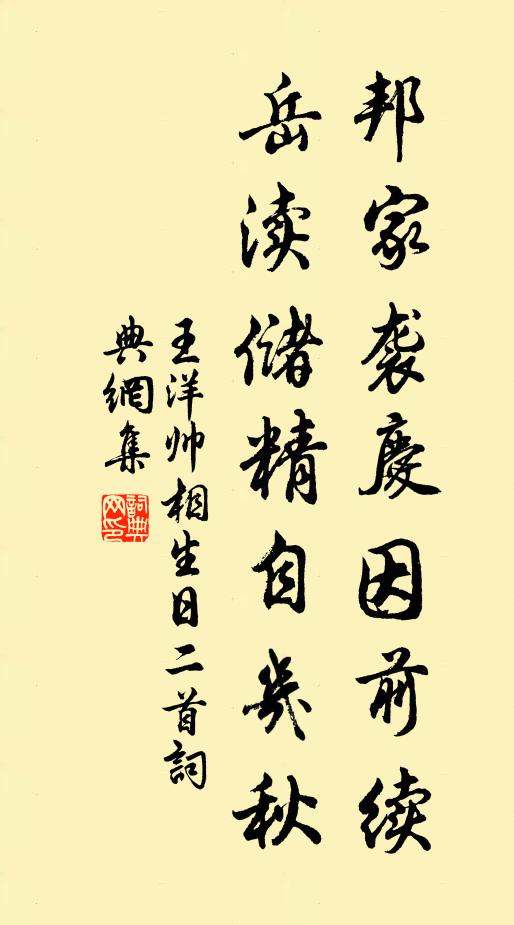 邦家袭慶因前续
岳渎储精自幾秋
王洋帅相生日二首詞
典網集
詞典
网印